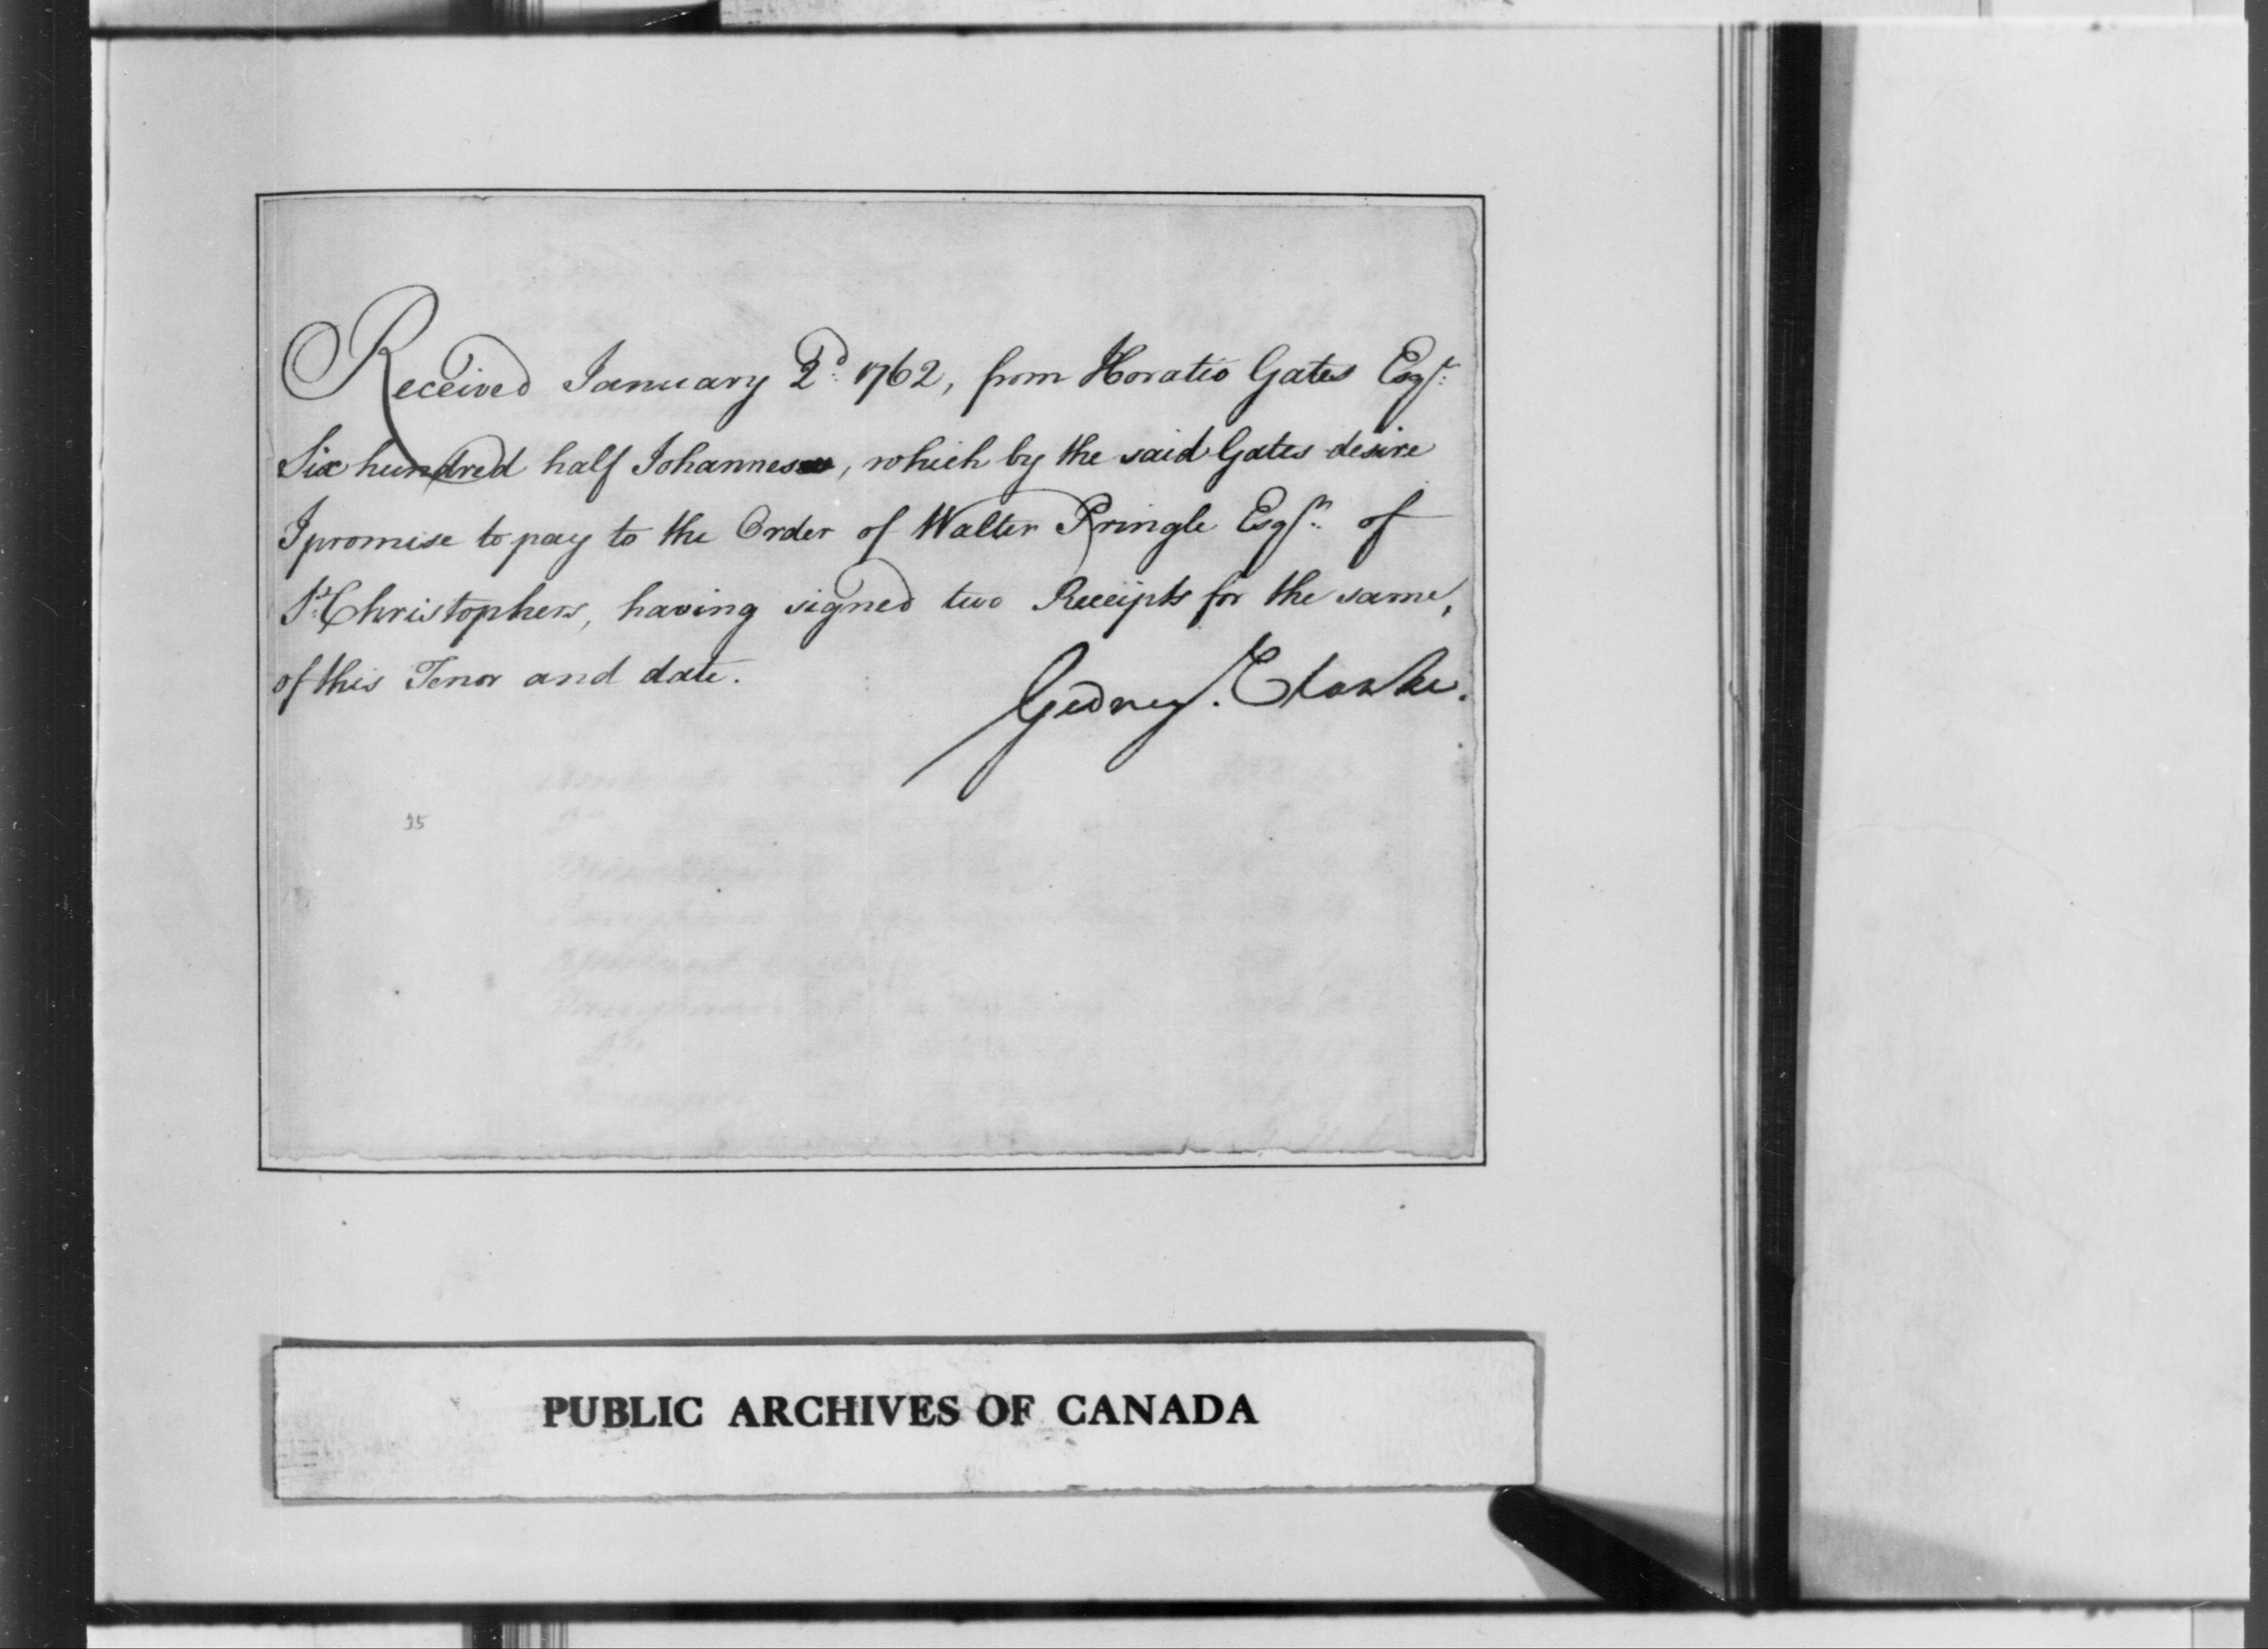 Received January 2d: 1762, from Horatio Gates Esqr:
Six hundred half Johannes, which by the said Gates desire
I promise to pay to the Order of Walter Pringle Esqr: of
St: Christophers, having signed two Receipts for the same,
of this Tenor and date.
Gedney. Clarke.
35
PUBLIC ARCHIVES OF CANADA